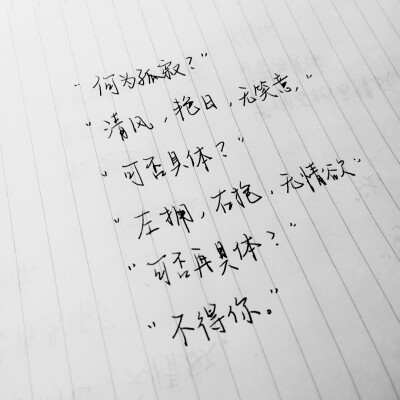 "何为孤寂？"
"清风，艳日，无笑意。"
"可否具体？"
"左拥，右抱，无情欲"
"可否再具体？"
"不得你。"